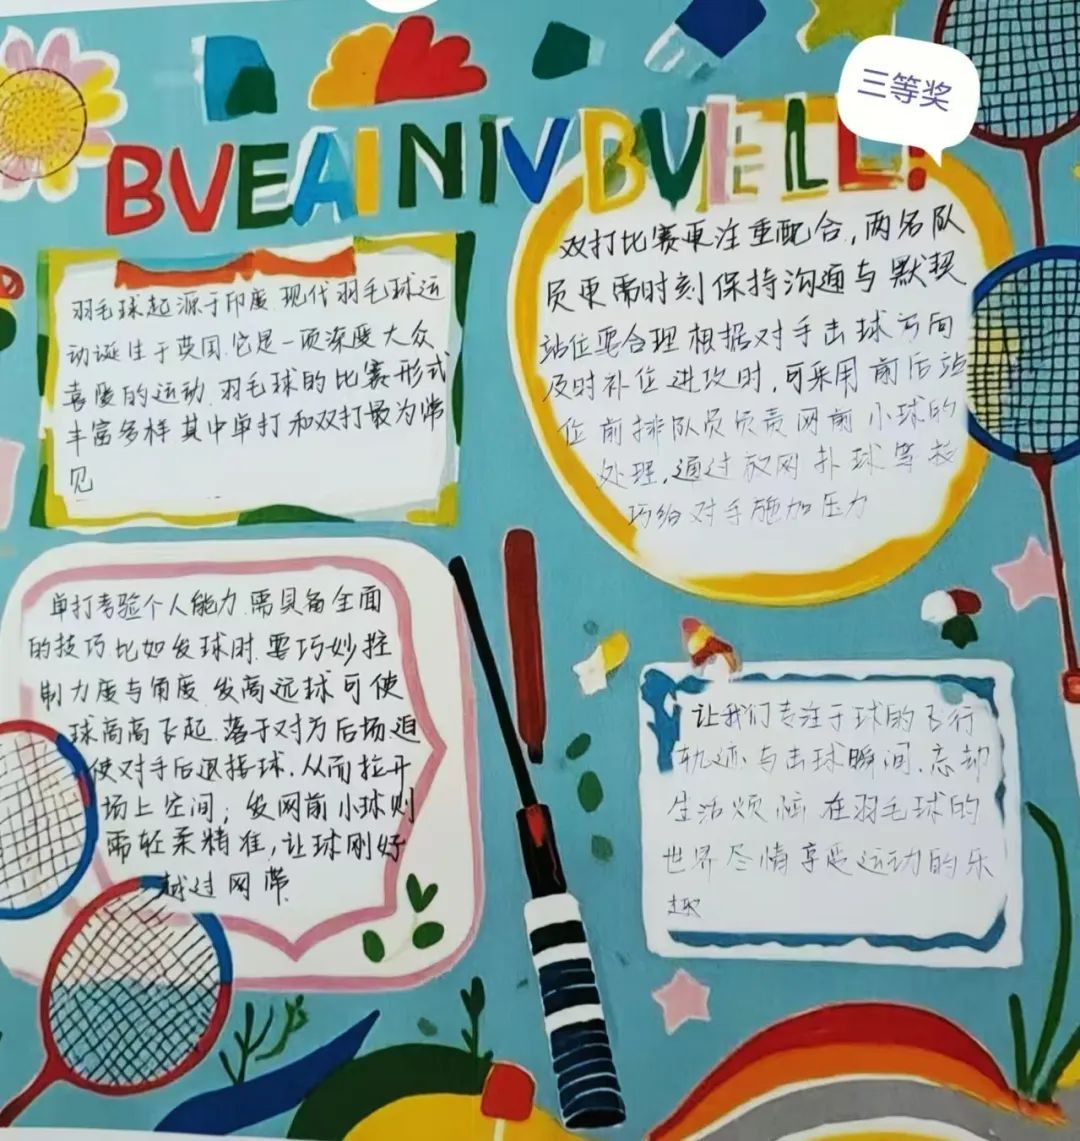 三等奖
BVEAINIV BVIELL!
羽毛球起源于印度.现代羽毛球运
动诞生于英国.它是一项深受大众
喜爱的运动.羽毛球的比赛形式
丰富多样其中单打和双打最为常
见
双打比赛更注重配合,两名队
员更需时刻保持沟通与默契
站位要合理根据对手击球方向
及时补位进攻时,可采用前后站
位前排队员负责网前小球的
处理,通过放网扑球等技
巧给对手施加压力
单打考验个人能力.需具备全面
的技巧比如发球时.要巧妙控
制力度与角度发高远球可使
球高高飞起.落于对方后场迫
使对手后退接球.从而拉开
场上空间;发网前小球则
需轻柔精准,让球刚好
越过网带.
让我们专注于球的飞行
轨迹与击球瞬间.忘却
生活烦恼在羽毛球的
世界尽情享受运动的乐
趣